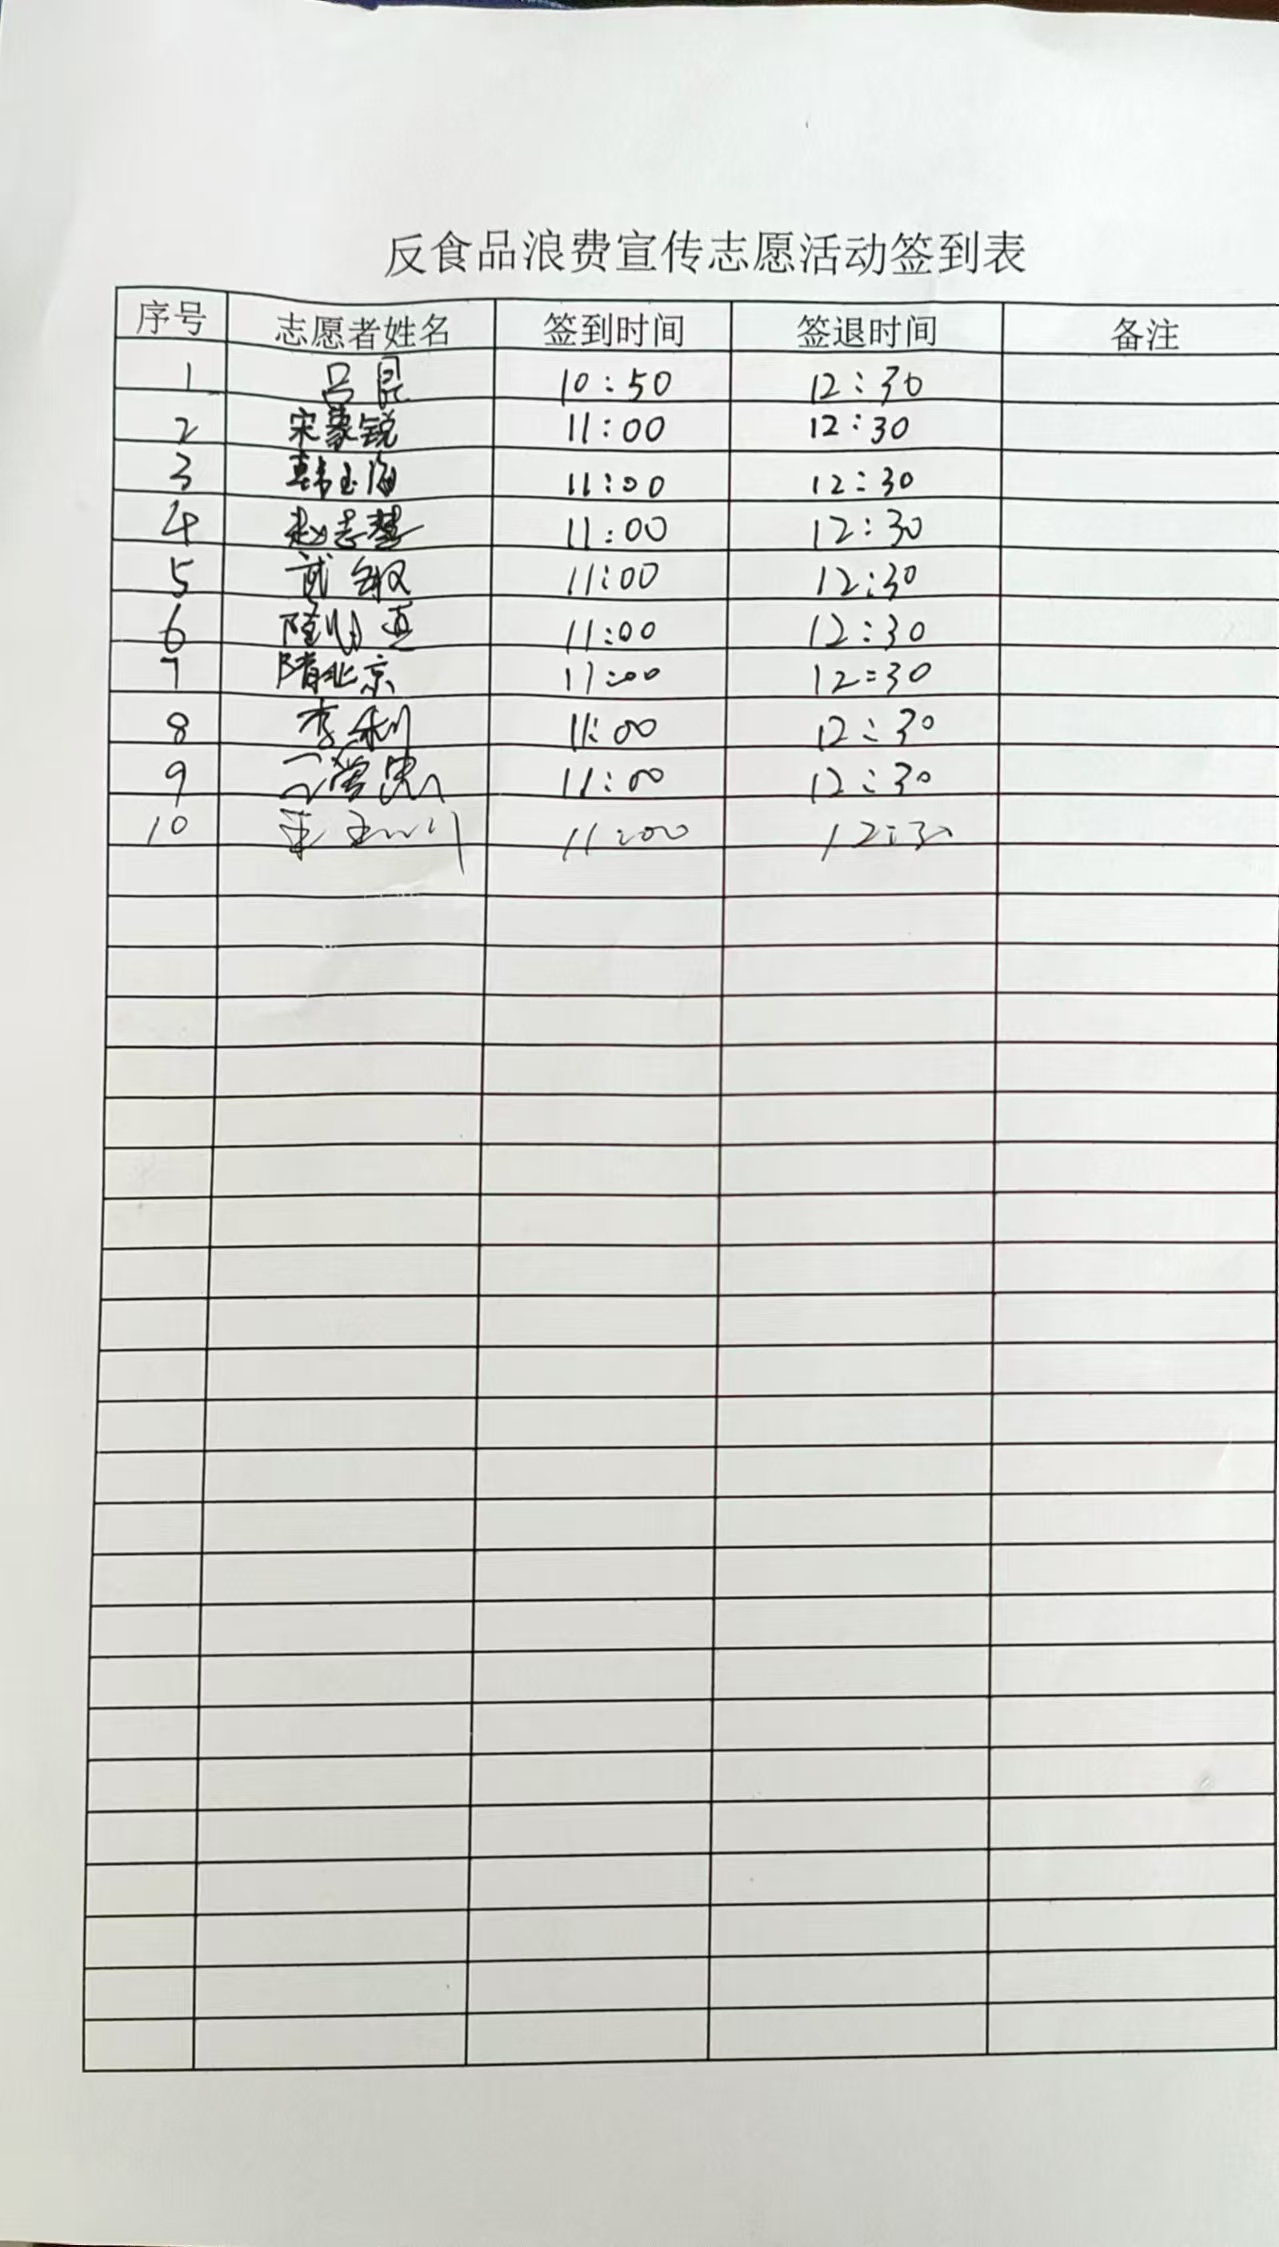 反食品浪费宣传志愿活动签到表
序号 志愿者姓名 签到时间 签退时间 备注
1 吕昆 10:50 12:30
2 宋蒙锐 11:00 12:30
3 韩玉海 11:00 12:30
4 赵志慧 11:00 12:30
5 武 11:00 12:30
6 11:00 12:30
7 隋北京 11:00 12:30
8 李利 11:00 12:30
9 11:00 12:30
10 11:00 12:30